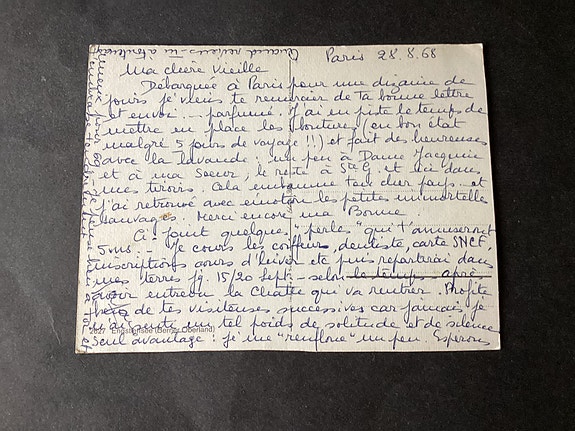 Paris 28.8.68
Ma chère Vieille
Débarquée à Paris pour une dizaine de
jours je viens te remercier de ta bonne lettre
et envoi... parfumé. J'ai eu juste le temps de
mettre en place les boutures (en bon état
malgré 5 jours de voyage!!) et fait des heureuses
avec la lavande: un peu à Dame Jacquie
et à ma Soeur, le reste à St G. et ici dans
mes tiroirs. Cela embaume ton cher pays et
j'ai retrouvé avec émotion les petites immortelles
sauvages. Merci encore ma Bonne
Ci joint quelques "perles" qui t'amuseront
5 ms... Je cours les coiffeur, dentiste, carte SNCF,
inscriptions cours d'hiver etc puis repartirai dans
mes terres jq. 15/20 Sept. - selon le temps après
avoir entrevu la Chatte qui va rentrer. Profite
bien de tes visiteuses successives car jamais je
n'ai senti un tel poids de solitude et de silence
2627 Engstlensee (Berner Oberland)
Seul avantage: je me "renfloue" un peu. Espérons
Quand reviens-tu à